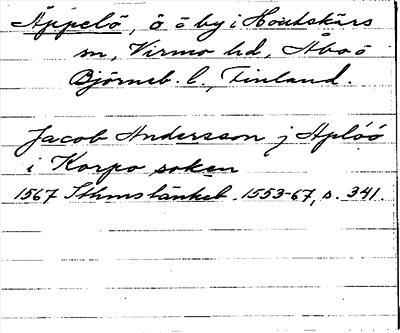 Äppelö, ö o by i Houtskärs
sn, Virmo hd, Åbo o
Björneb. l., Finland.
Jacob Andersson j Aplöö
i Korpo soken
1567 Sthms tänkeb. 1553-67, s. 341.